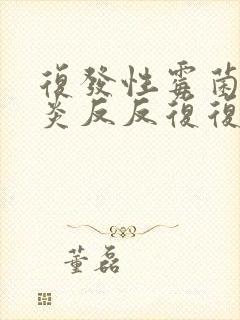 復發性霉菌
炎反反復復
董磊